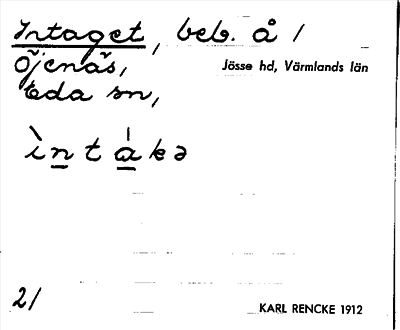 Intaget, beb. å /
Öjenäs,
Jösse hd, Värmlands län
Eda sn,
ìntákə
2/
KARL RENCKE 1912